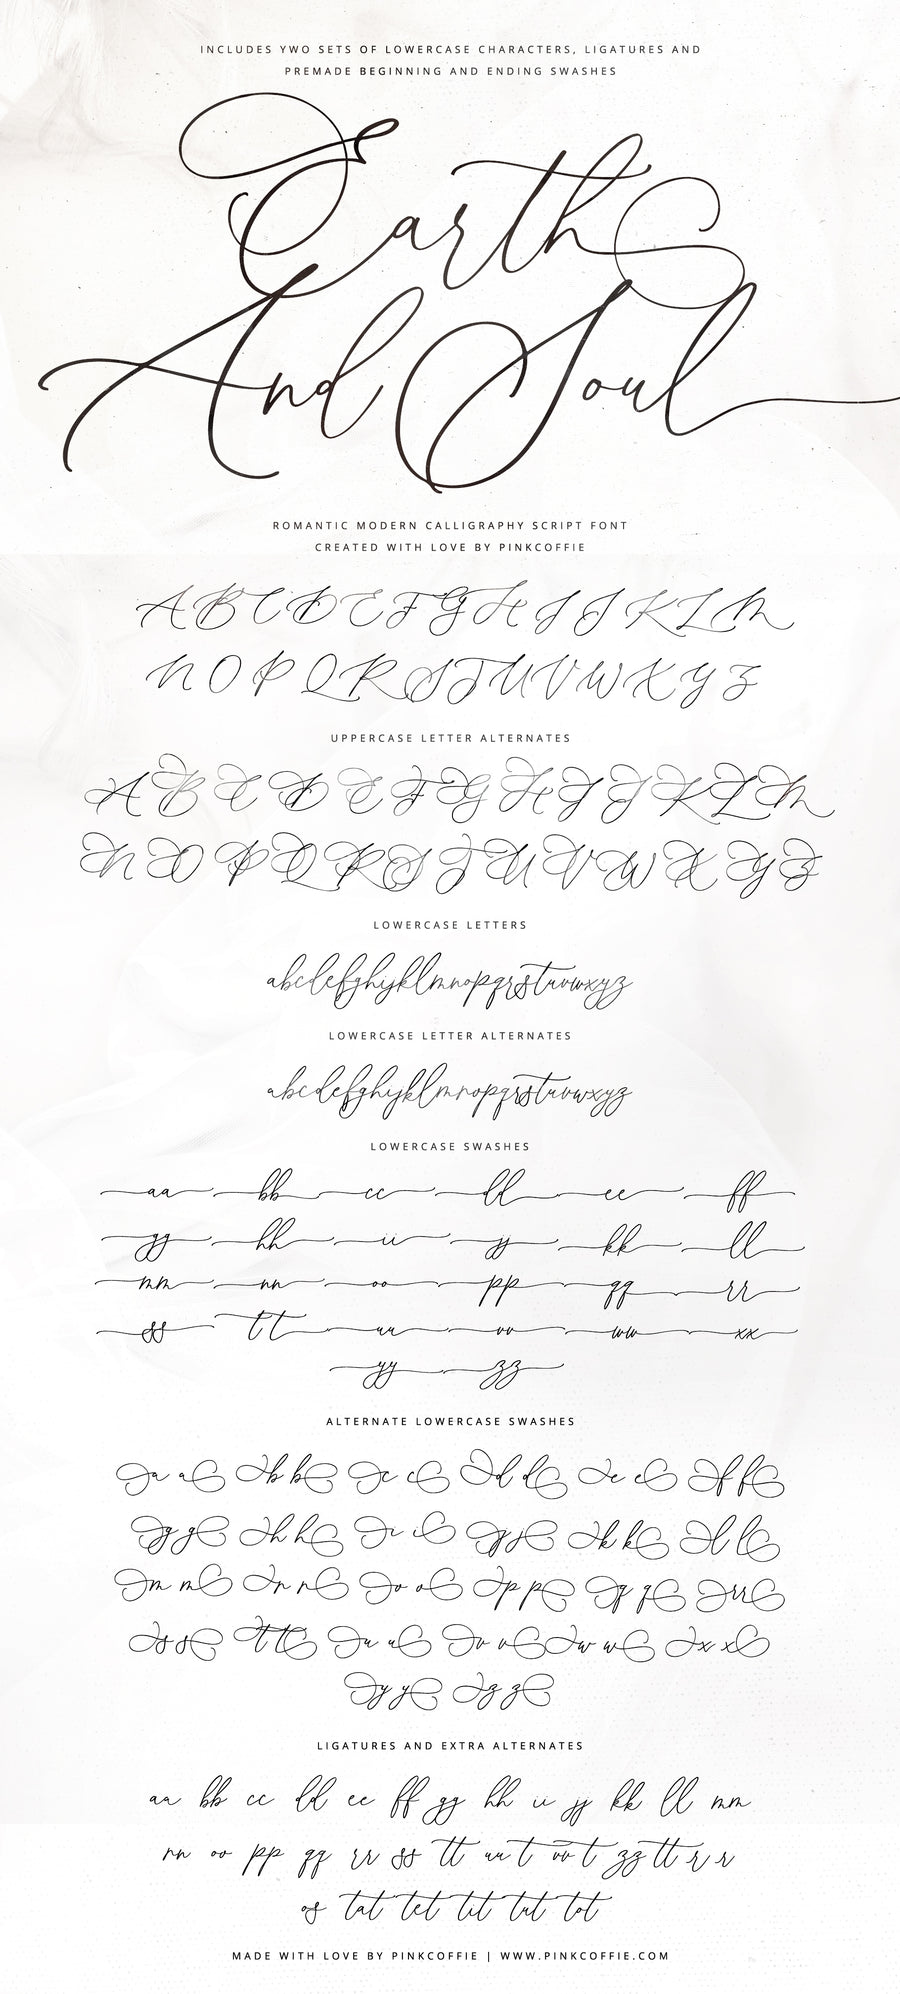 INCLUDES YWO SETS OF LOWERCASE CHARACTERS, LIGATURES AND
PREMADE BEGINNING AND ENDING SWASHES
Earth
And Soul
ROMANTIC MODERN CALLIGRAPHY SCRIPT FONT
CREATED WITH LOVE BY PINKCOFFIE
A B C D E F G H I J K L M
N O P Q R S T U V W X Y Z
UPPERCASE LETTER ALTERNATES
A B C D E F G H I J K L M
N O P Q R S T U V W X Y Z
LOWERCASE LETTERS
abcdefghijklmnopqrstuvwxyz
LOWERCASE LETTER ALTERNATES
abcdefghijklmnopqrstuvwxyz
LOWERCASE SWASHES
aa bb cc dd ee ff
gg hh ii jj kk ll
mm nn oo pp qq rr
ss tt uu vv ww xx
yy zz
ALTERNATE LOWERCASE SWASHES
a a b b c c d d e e f f
g g h h i i j j k k l l
m m n n o o p p q q r r
s s t t u u v v w w x x
y y z z
LIGATURES AND EXTRA ALTERNATES
aa bb cc dd ee ff gg hh ii jj kk ll mm
nn oo pp qq rr ss tt uu t vv t zz tt r r
os tat tet tit tut tot
MADE WITH LOVE BY PINKCOFFIE | WWW.PINKCOFFIE.COM